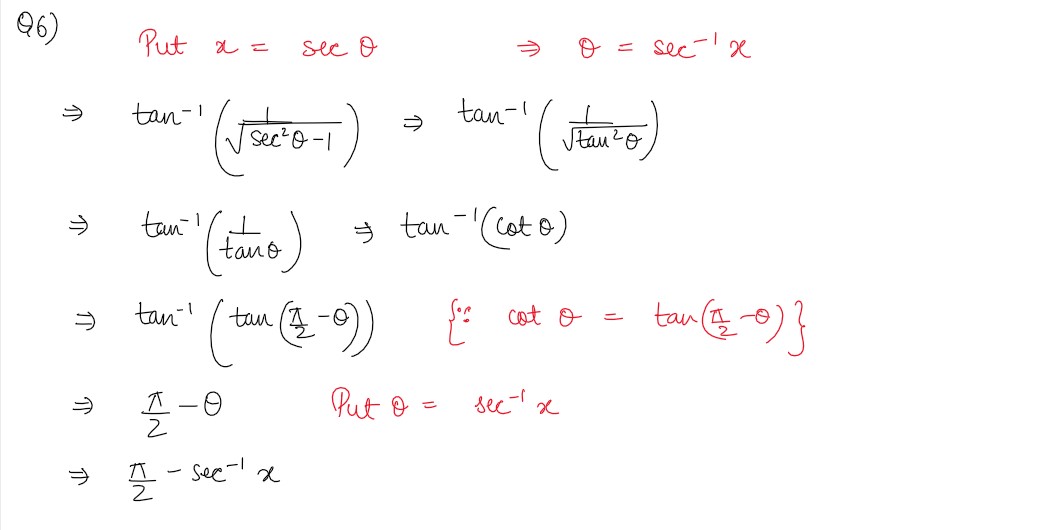 Q6)
Put x = sec θ ⇒ θ = sec⁻¹ x
⇒ tan⁻¹(1/√(sec²θ-1)) ⇒ tan⁻¹(1/√(tan²θ))
⇒ tan⁻¹(1/tanθ) ⇒ tan⁻¹(cot θ)
⇒ tan⁻¹(tan(π/2 - θ)) {∵ cot θ = tan(π/2 - θ)}
⇒ π/2 - θ Put θ = sec⁻¹ x
⇒ π/2 - sec⁻¹ x